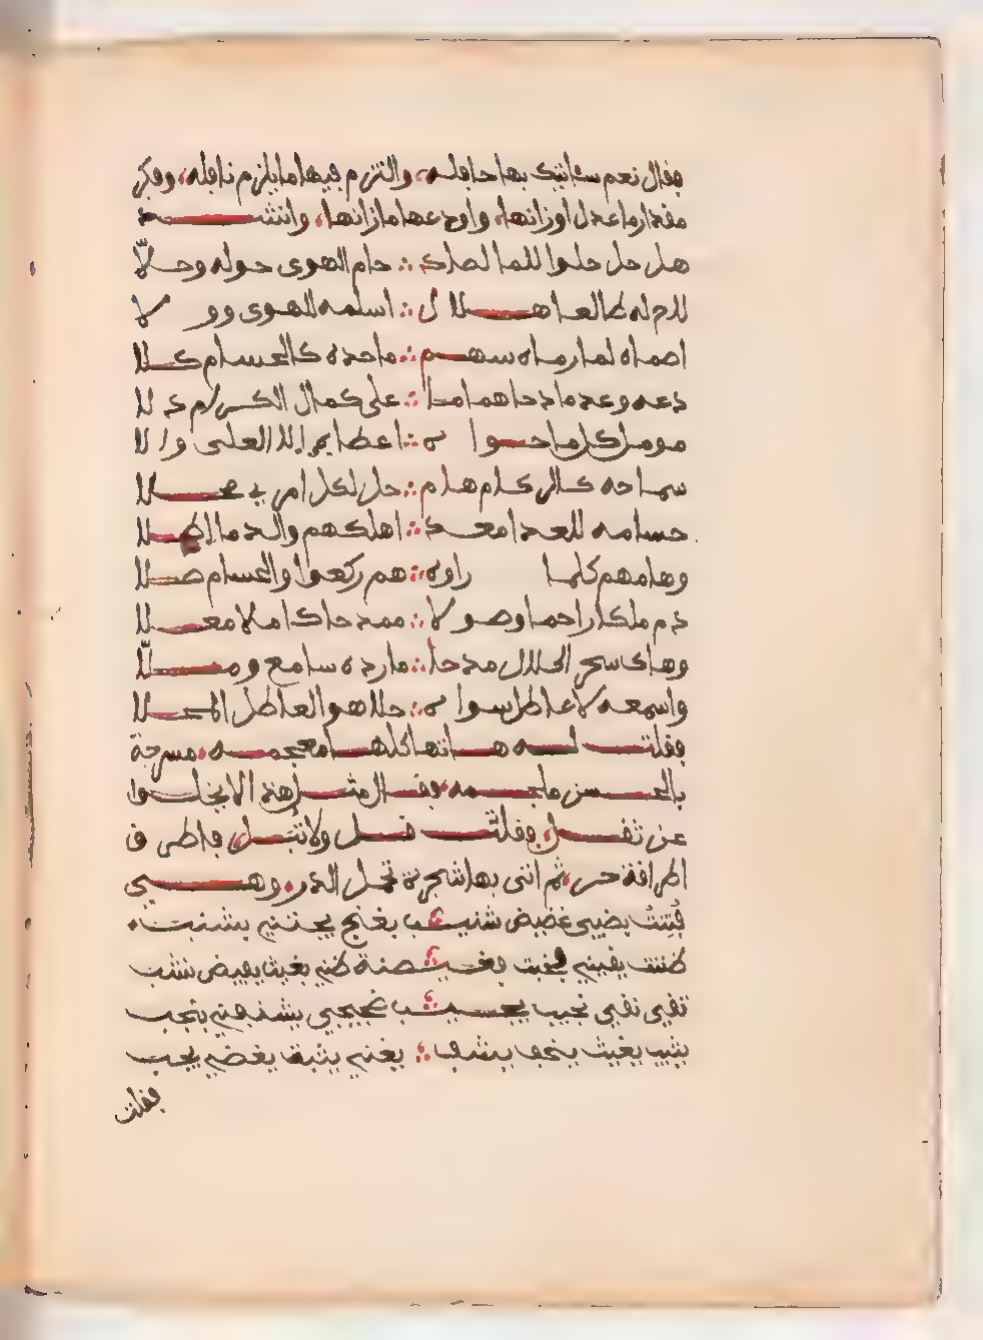 فقال نعم سئاتيك بها حافلة، والتزم فيها ما يلزم نافله، وفكر
مقدار ما عدل اوزانها، واودعها مازانها، وانشد
هل حل حلوا للما لصاك ∴ حام الهوى حوله وحلا
لاح له طالعا هلال ∴ اسلمه للهوى وولا
اصماه لما رماه سهم ∴ ماحده كالحسام كلا
دعه وعد مادحا هماما ∴ على كمال الكرام دلا
مومل كلما حوا ه ∴ اعطا العلى والا
سماحه كالركام هام ∴ حل لكل امر محلا
حسامه للعدا معد ∴ اهلكهم والدما اطلا
وهامهم كلما راوه ∴ هم ركعوا والحسام صلا
دم ملكا راحما وصولا ∴ ممدحا كاملا معلا
وهاك سحر الحلال مدحا ∴ مارده سامع وملا
واسمعه لا عاطل سواه ∴ حلا هو العاطل المحلا
فقلت له هاتها كلها معجمه، مسرجة
بالحسن ملجمه، فقال مثل هذا لا يخلوا
عن ثقل، فقلت قل ولا تبل، فاطرق
اطراقة حر، ثم اتى بها شجرة تحمل الدر، وهي
فتنت بضبي غضيض شنب بغنج يجنني بشنبت
ظننت يفيني فخبت بغيض ضنة ظني بغيث يفيض نشب
تقي نقي نجيب يجيب شب نجيبي بشذ فني بتجب
يثيب بغيث ينجف بشف ∴ يغني يثبة بغضي يجب
فقلت